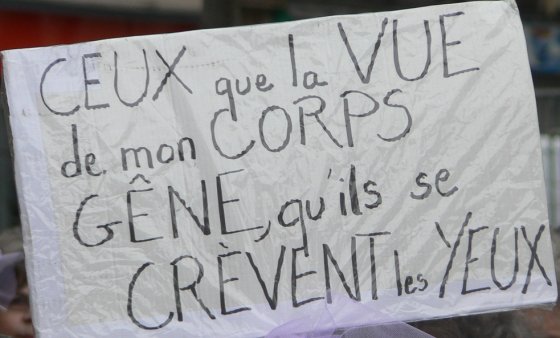 CEUX que la VUE
de mon CORPS
GÊNE, qu'ils se
CRÈVENT les YEUX